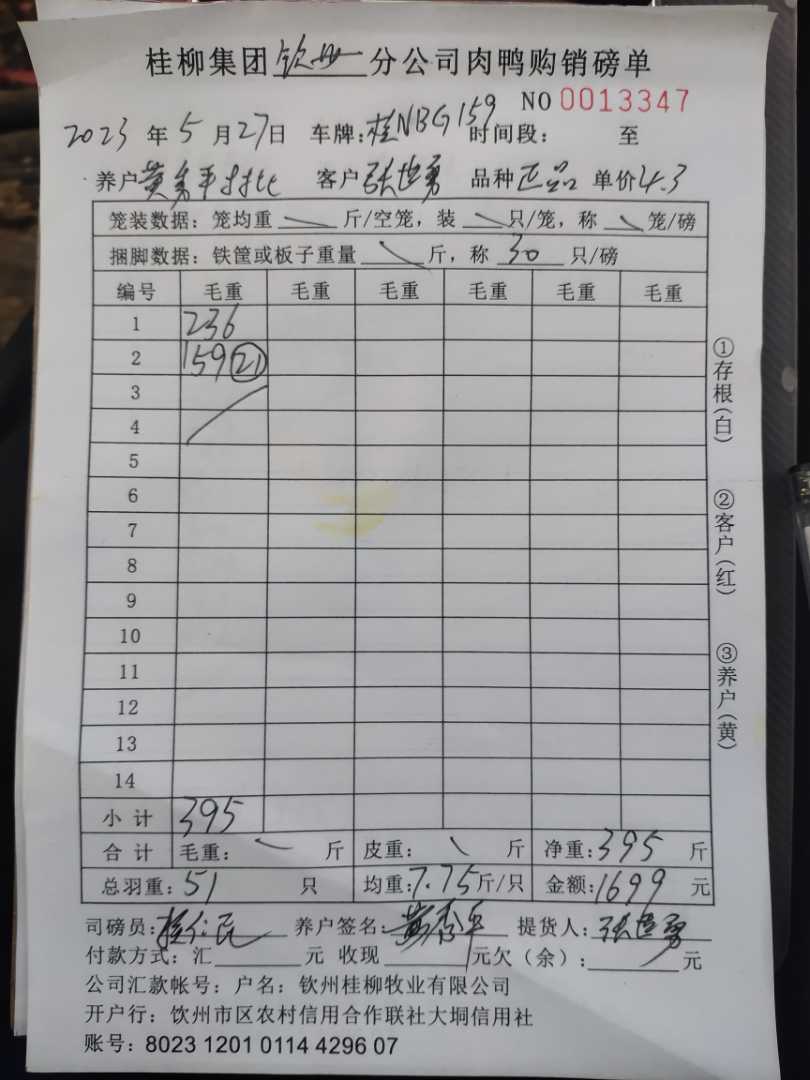 桂柳集团钦州分公司肉鸭购销磅单
NO 0013347
2023年5月27日 车牌:桂NBG159 时间段: 至
养户黄 平 客户张世勇 品种正品 单价4.3
笼装数据: 笼均重 斤/空笼, 装 只/笼, 称 笼/磅
捆脚数据: 铁筐或板子重量 斤, 称 30 只/磅
编号 毛重 毛重 毛重 毛重 毛重 毛重
1 236
2 159 (21)
3
4
5
6
7
8
9
10
11
12
13
14
小计 395
合计 毛重: 斤 皮重: 斤 净重:395 斤
总羽重:51 只 均重:7.75斤/只 金额:1699元
司磅员: 养户签名:黄 平 提货人:张世勇
付款方式:汇 元 收现 元欠(余): 元
公司汇款帐号: 户名: 钦州桂柳牧业有限公司
开户行: 饮州市区农村信用合作联社大垌信用社
账号: 8023 1201 0114 4296 07
①存根(白)
②客户(红)
③养户(黄)